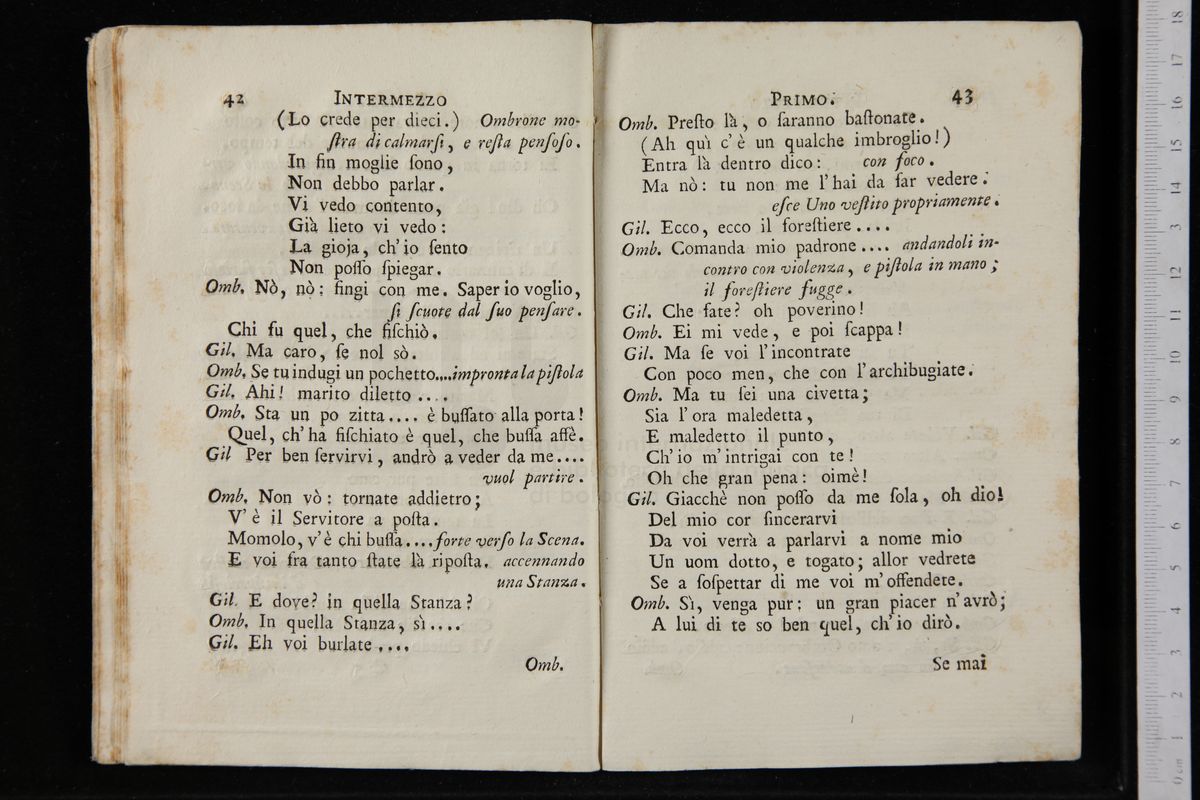 42 INTERMEZZO
(Lo crede per dieci.) Ombrone mo-
ſtra di calmarſi, e reſta penſoſo.
In fin moglie ſono,
Non debbo parlar.
Vi vedo contento,
Già lieto vi vedo:
La gioja, ch'io ſento
Non poſſo ſpiegar.
Omb. Nò, nò: fingi con me. Saper io voglio,
ſi ſcuote dal ſuo penſare.
Chi fu quel, che fiſchiò.
Gil. Ma caro, ſe nol sò.
Omb. Se tu indugi un pochetto....impronta la piſtola
Gil. Ahi! marito diletto ....
Omb. Sta un po zitta.... è buſſato alla porta!
Quel, ch'ha fiſchiato è quel, che buſſa affè.
Gil Per ben ſervirvi, andrò a veder da me....
vuol partire.
Omb. Non vò: tornate addietro;
V'è il Servitore a poſta.
Momolo, v'è chi buſſa....forte verſo la Scena.
E voi fra tanto ſtate là ripoſta. accennando
una Stanza.
Gil. E dove? in quella Stanza?
Omb. In quella Stanza, sì....
Gil. Eh voi burlate ....
Omb.
PRIMO. 43
Omb. Preſto là, o ſaranno baſtonate.
(Ah quì c'è un qualche imbroglio!)
Entra là dentro dico: con foco.
Ma nò: tu non me l'hai da far vedere.
eſce Uno veſtito propriamente.
Gil. Ecco, ecco il foreſtiere....
Omb. Comanda mio padrone.... andandoli in-
contro con violenza, e piſtola in mano;
il foreſtiere fugge.
Gil. Che fate? oh poverino!
Omb. Ei mi vede, e poi ſcappa!
Gil. Ma ſe voi l'incontrate
Con poco men, che con l'archibugiate.
Omb. Ma tu ſei una civetta;
Sia l'ora maledetta,
E maledetto il punto,
Ch'io m'intrigai con te!
Oh che gran pena: oimè!
Gil. Giacchè non poſſo da me ſola, oh dio!
Del mio cor ſincerarvi
Da voi verrà a parlarvi a nome mio
Un uom dotto, e togato; allor vedrete
Se a ſoſpettar di me voi m'offendete.
Omb. Sì, venga pur: un gran piacer n'avrò;
A lui di te so ben quel, ch'io dirò.
Se mai